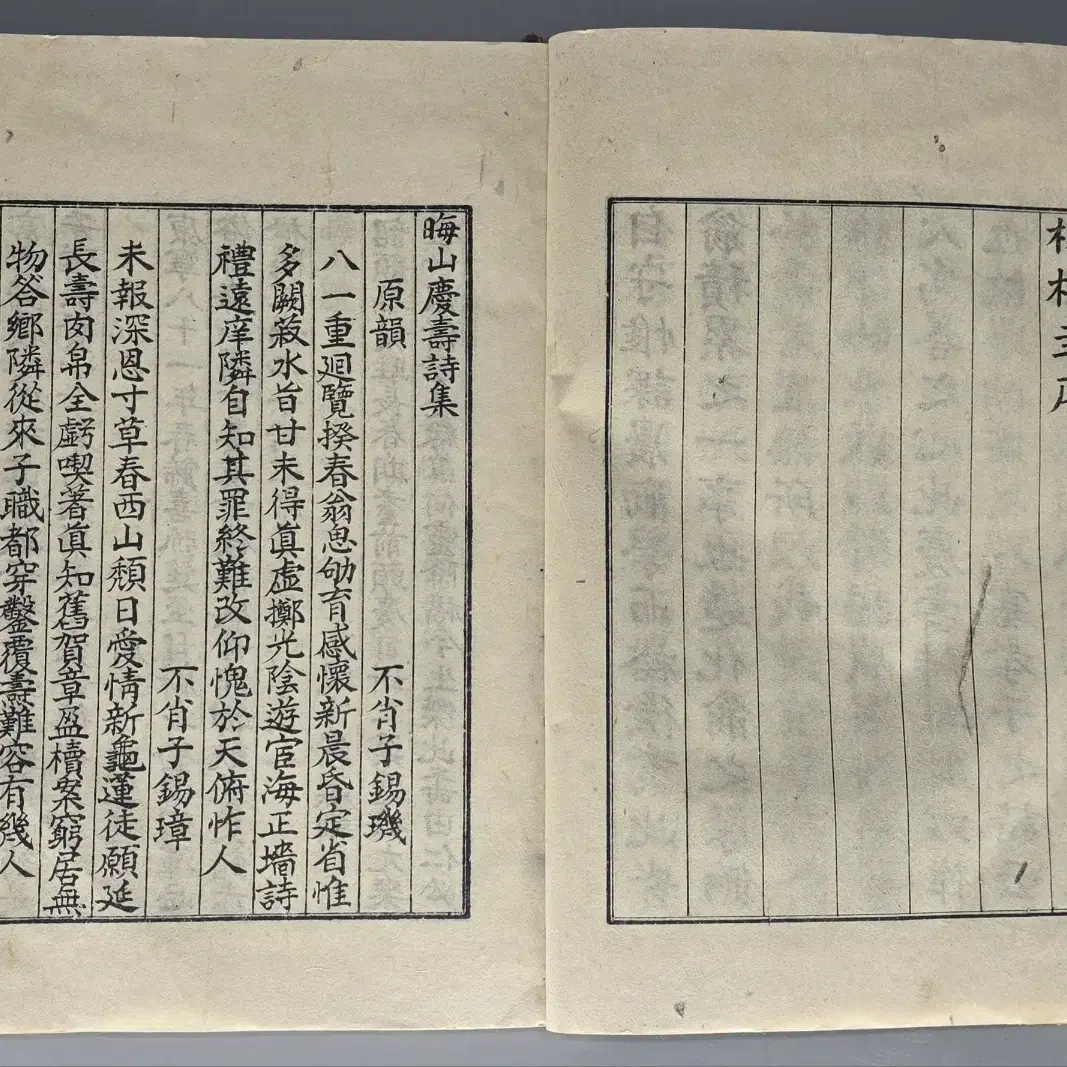 晦山慶壽詩集
原韻 不肖子錫璣
八一重廻覽揆春翁恩劬育感懷新晨昏定省惟
多闕菽水旨甘未得眞虛擲光陰遊宦海正墻詩
禮遠庠隣自知其罪終難改仰愧於天俯怍人
不肖子錫璋
未報深恩寸草春西山頹日愛情新龜蓮徒願延
長壽肉帛全虧喫著眞知舊賀章盈櫝案窮居無
物答鄕隣從來子職都穿鑿覆燾難容有幾人